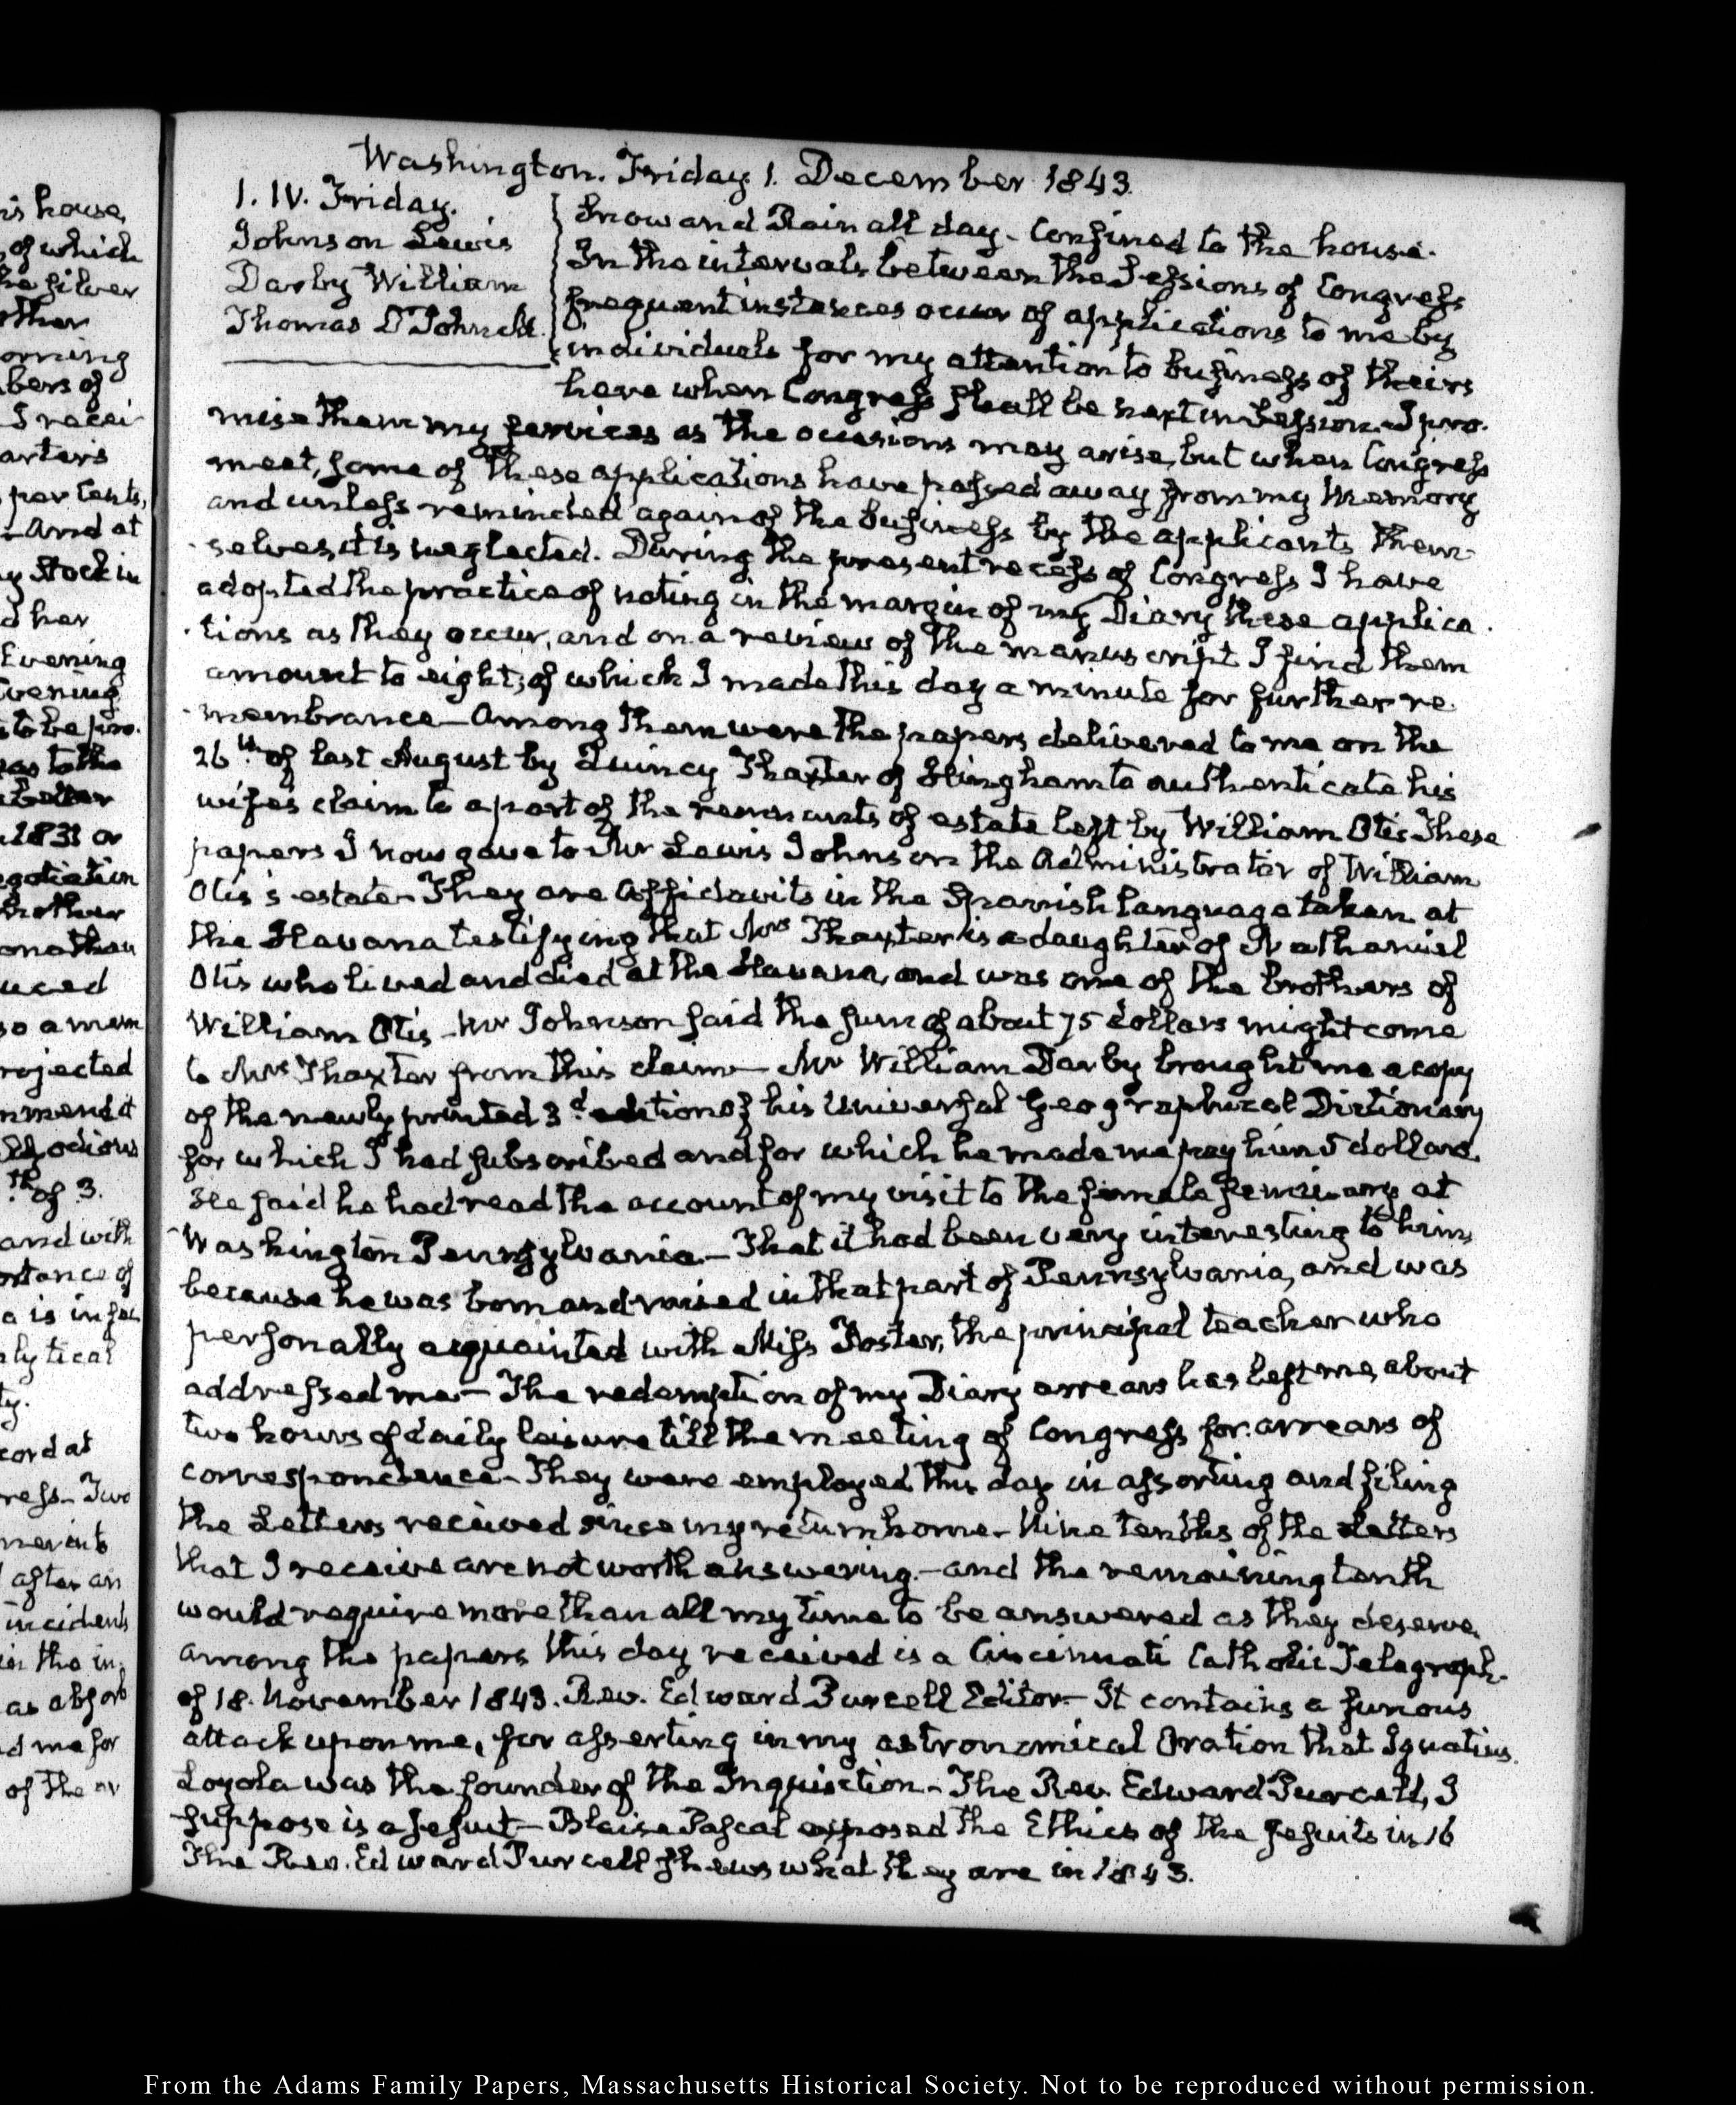 Washington. Friday 1. December 1843.
1. IV. Friday.
Johnson Lewis
Darby William
Thomas D Johnelk
Snow and Rain all day. Confined to the house.
In the intervals between the Sessions of Congress
frequent instances occur of applications to me by
individuals for my attention to business of theirs
here when Congress shall be next in Session. I pro-
mise them my services as the occasions may arise, but when Congress
meet, some of these applications have passed away from my memory
and unless reminded again of the business by the applicants them-
selves, it is neglected. During the present recess of Congress I have
adopted the practice of noting in the margin of my Diary these applica-
tions as they occur, and on a review of the manuscript I find them
amount to eight; of which I made this day a minute for further re-
membrance— Among them were the papers delivered to me on the
26th of last August by Quincy Thaxter of Hingham to authenticate his
wife's claim to a part of the remnants of estate left by William Otis These
papers I now gave to Mr Lewis Johnson the Administrator of William
Otis's estate— They are Affidavits in the Spanish language taken at
the Havana testifying that Mrs Thaxter is a daughter of Nathaniel
Otis who lived and died at the Havana, and was one of the brothers of
William Otis— Mr Johnson said the sum of about 75 dollars might come
to Mrs Thaxter from this claim— Mr William Darby brought me a copy
of the newly printed 3d edition of his Universal Geographical Dictionary
for which I had subscribed and for which he made me pay him 5 dollars.
He said he had read the account of my visit to the female seminary at
Washington Pennsylvania— That it had been very interesting to him,
because he was born and raised in that part of Pennsylvania, and was
personally acquainted with Miss Foster, the principal teacher who
addressed me— The redemption of my Diary arrears has left me about
two hours of daily leisure till the meeting of Congress for arrears of
correspondence— They were employed this day in assorting and filing
the Letters received since my return home— Nine tenths of the Letters
that I receive are not worth answering— and the remaining tenth
would require more than all my time to be answered as they deserve.
Among the papers this day received is a Cincinnati Catholic Telegraph.
of 18. November 1843. Rev. Edward Purcell Editor— It contains a furious
attack upon me, for asserting in my astronomical Oration that Ignatius
Loyola was the founder of the Inquisition— The Rev. Edward Purcell, I
suppose is a Jesuit— Blaise Pascal exposed the Ethics of the Jesuits in 16
The Rev. Edward Purcell shews what they are in 1843.
is house,
of which
he silver
other
orning
bers of
I recei-
arters
per Cents,
— And at
y Stock in
d her
Evening
vening
to be pro-
as to the
better
1831 or
egotiation
brother
onathan
uced
so a mem
rejected
mmend it
odious
th of 3.
and with
ortance of
a is in
lytical
ty.
cord at
ress— Two
ments
after an
incidents
in the in-
as absorb
d me for
of the ar
From the Adams Family Papers, Massachusetts Historical Society. Not to be reproduced without permission.